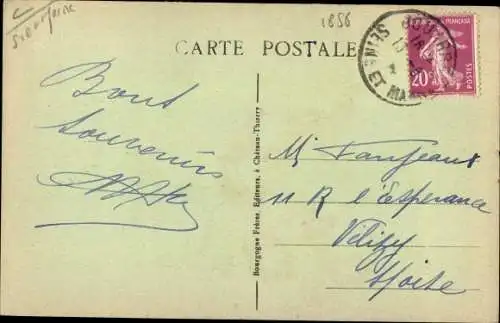 1856
CARTE POSTALE
SEINE ET MARNE
FRANÇAISE
20c
POSTES
Bons
Souvenirs
Bourgogne Frères, Editeurs, à Château-Thierry
Mr Fanjeaux
11 R l'Espérance
Vélizy
S/Oise